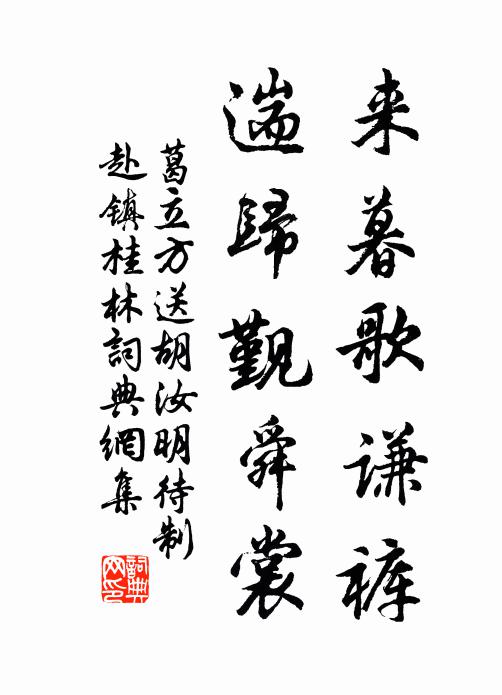 来暮歌谦裤
遄歸覲舜裳
葛立方送胡汝明待制
赴镇桂林詞典網集
詞典网印